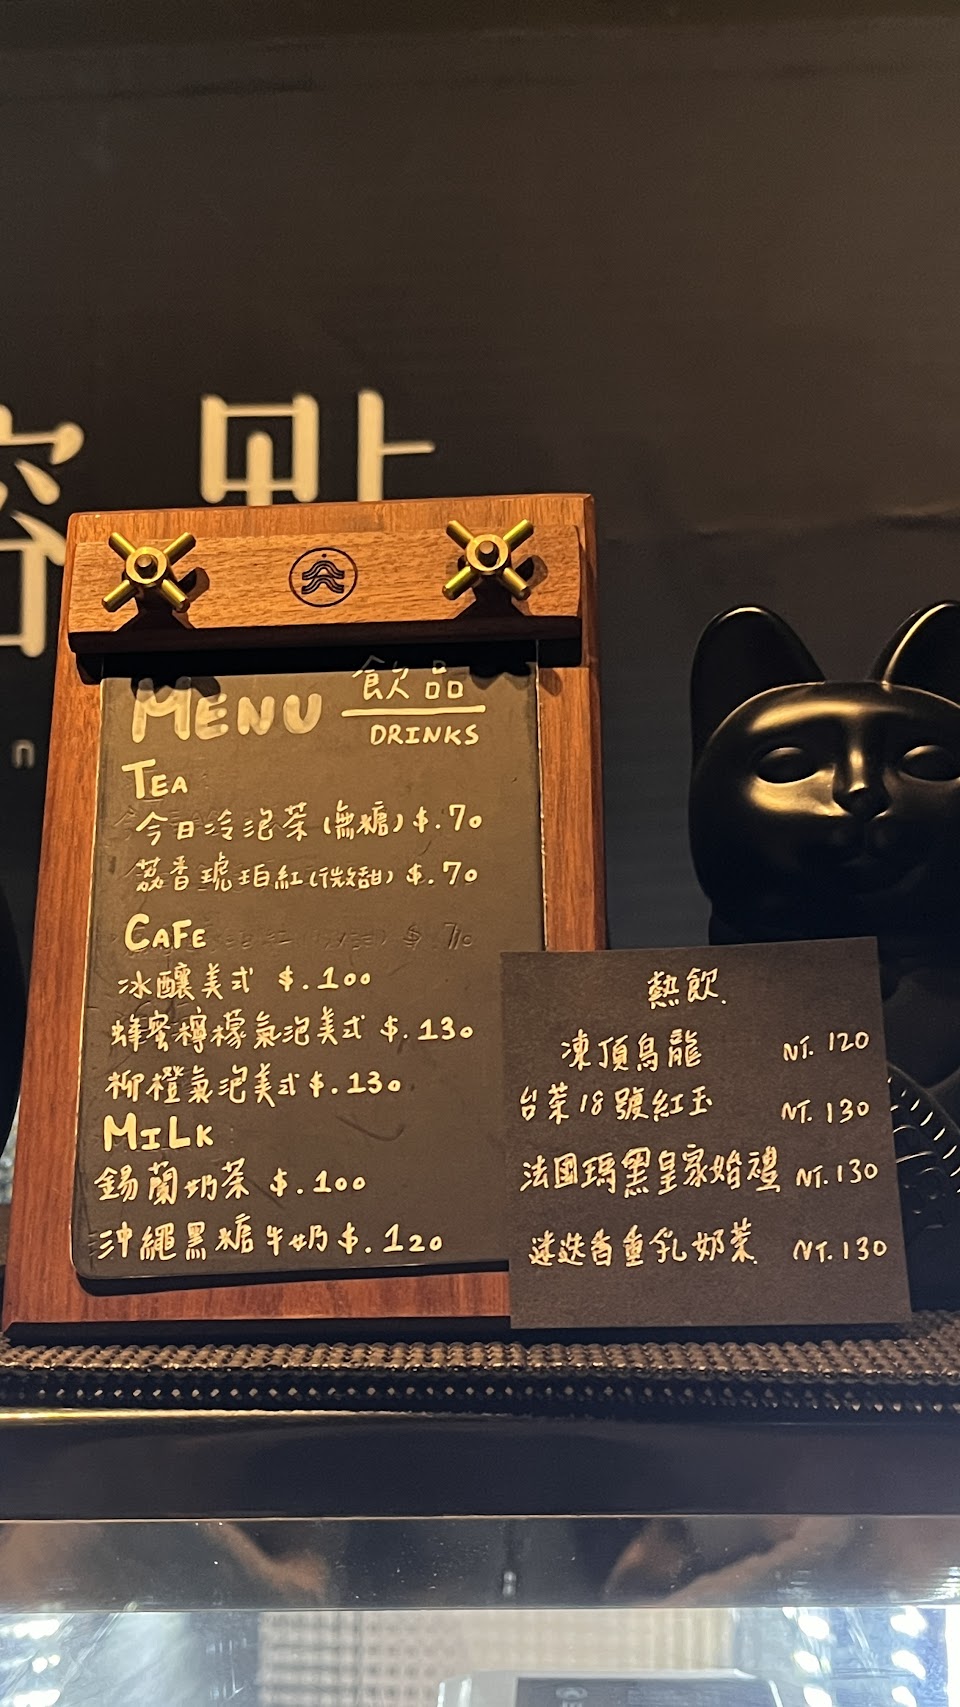 點
MENU 飲品
DRINKS
TEA
今日冷泡茶(無糖) $.70
荔香琥珀紅(微甜) $.70
CAFE
冰釀美式 $.100
蜂蜜檸檬氣泡美式 $.130
柳橙氣泡美式 $.130
MILK
錫蘭奶茶 $.100
沖繩黑糖牛奶 $.120
熱飲.
凍頂烏龍 NT. 120
台茶18號紅玉 NT. 130
法國瑪黑皇家婚禮 NT. 130
迷迭香重乳奶茶. NT. 130